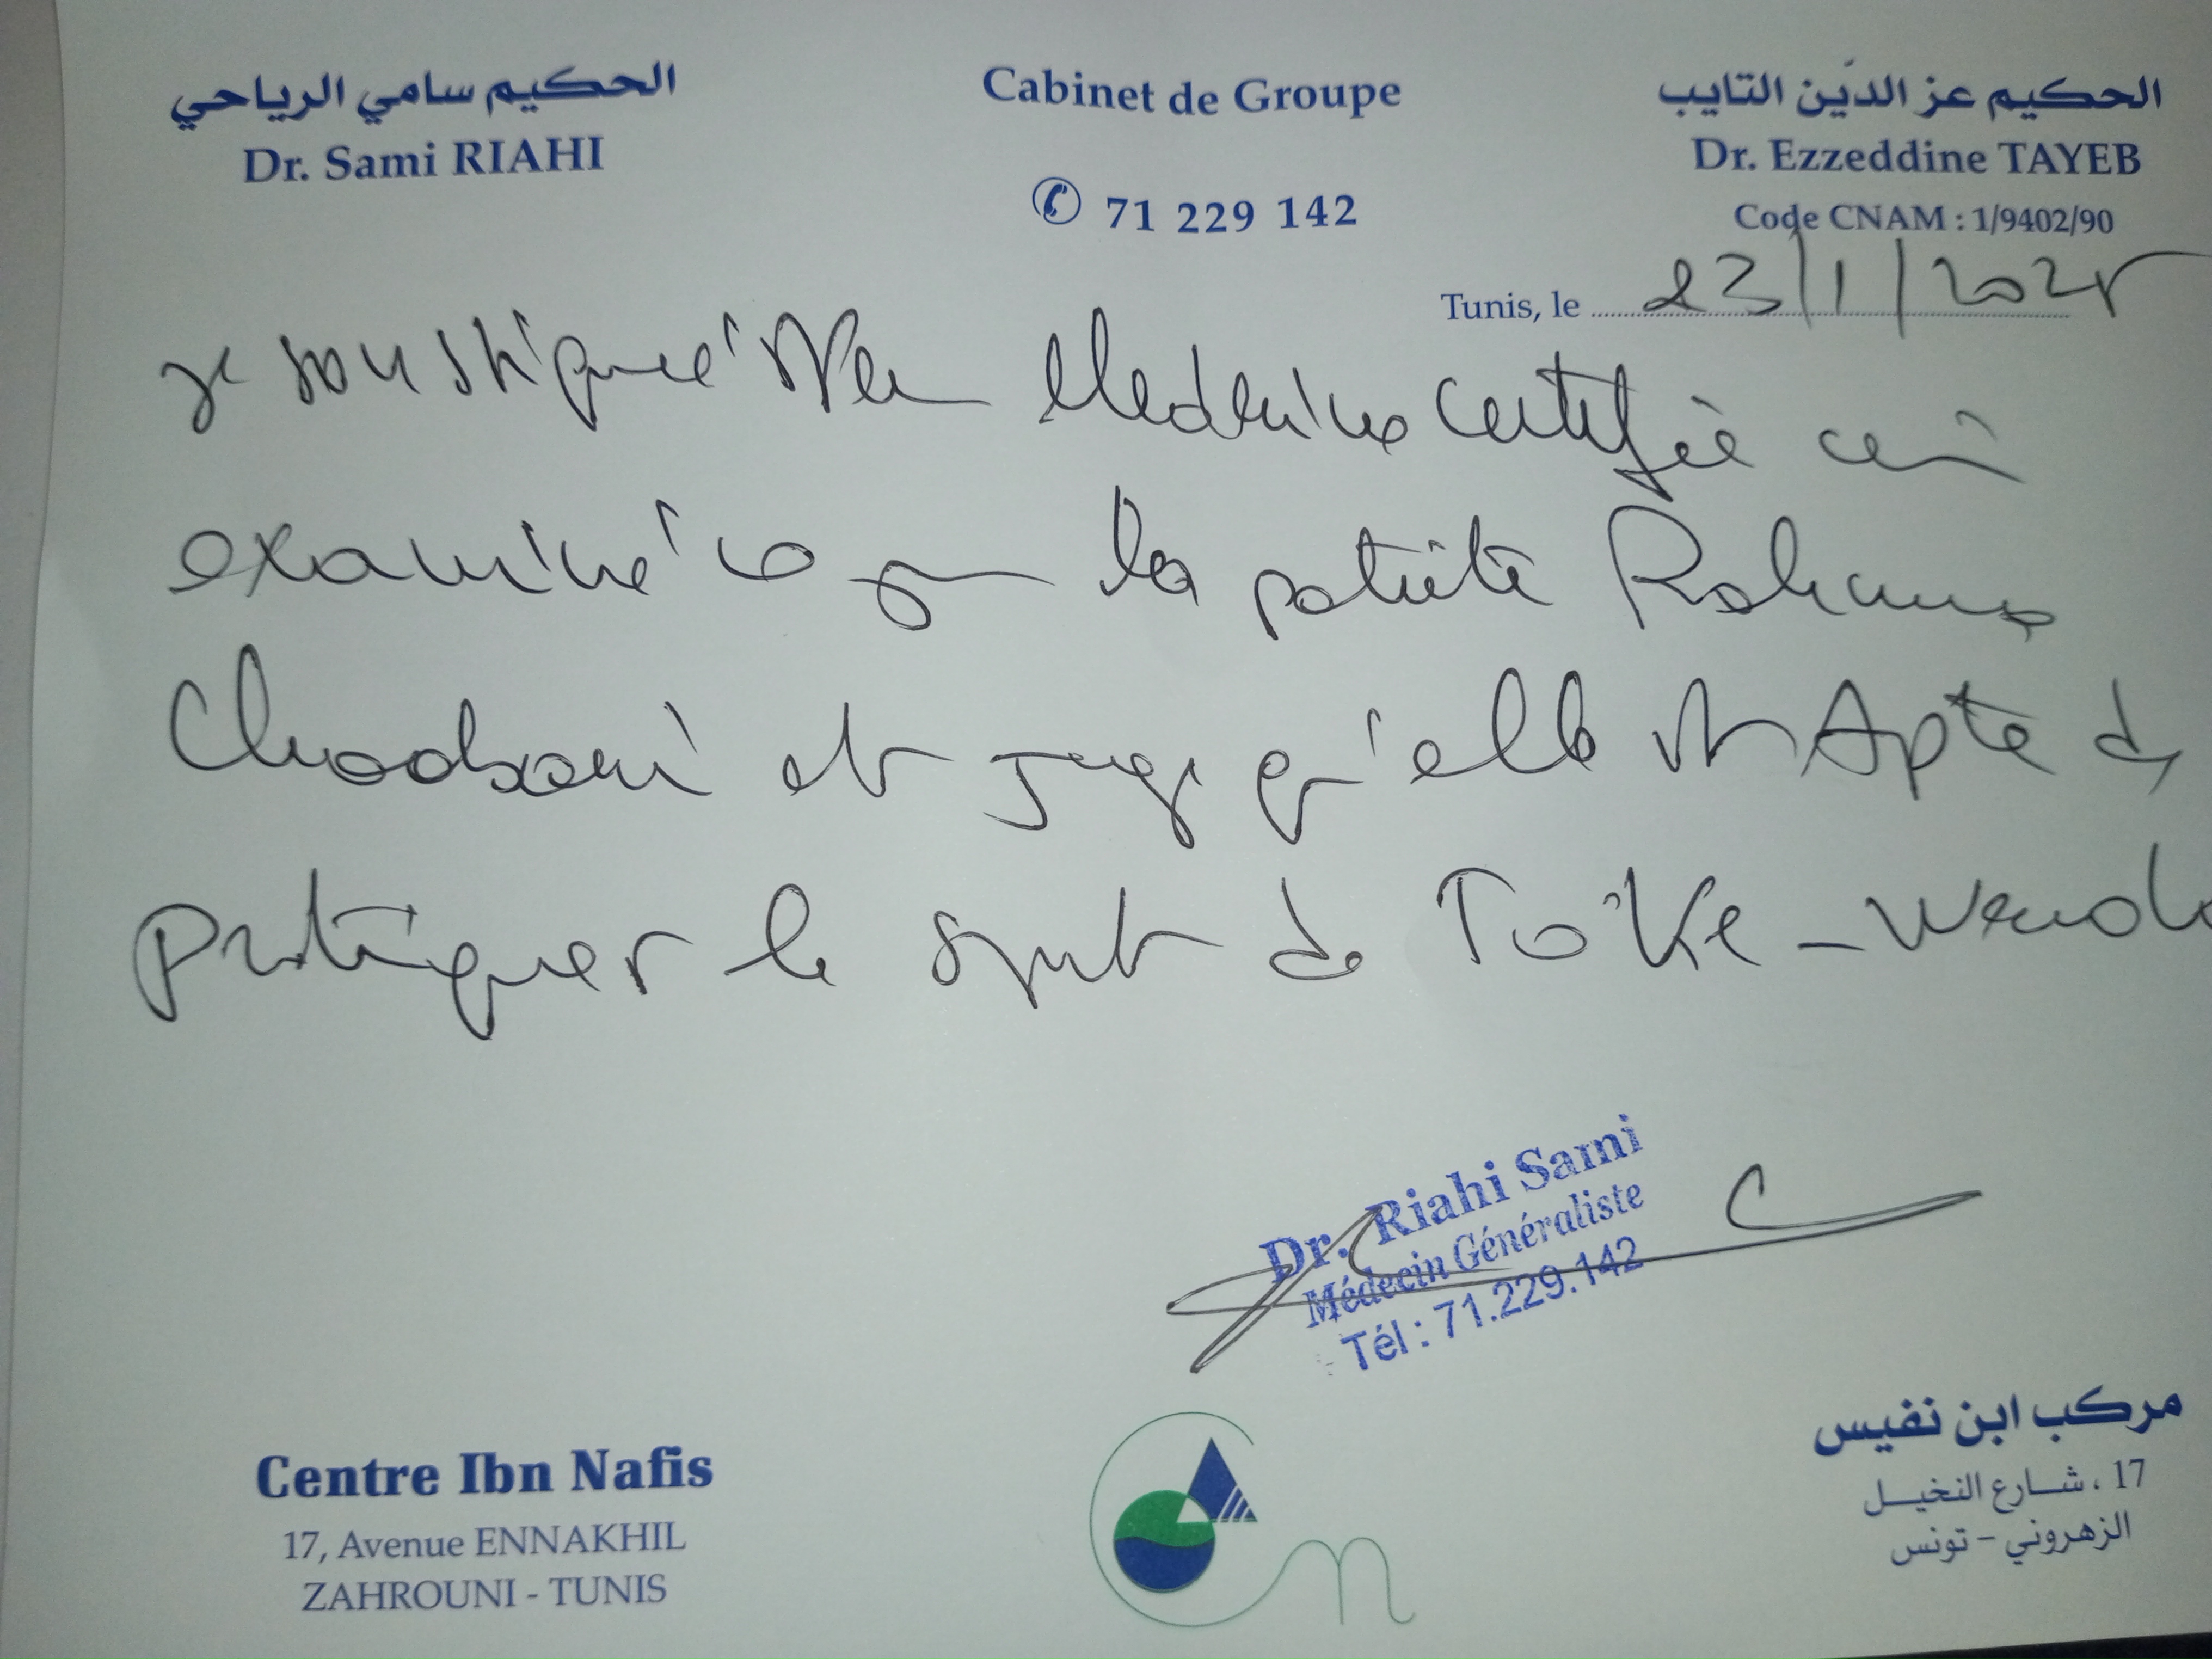 الحكيم سامي الرياحي
Dr. Sami RIAHI
Cabinet de Groupe
71 229 142
الحكيم عز الدّين التايب
Dr. Ezzeddine TAYEB
Code CNAM : 1/9402/90
Tunis, le 23/1/2025
je soussigné Medecine certifie
examiné la patiente
et juge qu'elle est Apte de
pratiquer le sport de
Dr. Riahi Sami
Médecin Généraliste
Tél : 71.229.142
Centre Ibn Nafis
17, Avenue ENNAKHIL
ZAHROUNI - TUNIS
مركب ابن نفيس
17 ، شارع النخيل
الزهروني - تونس